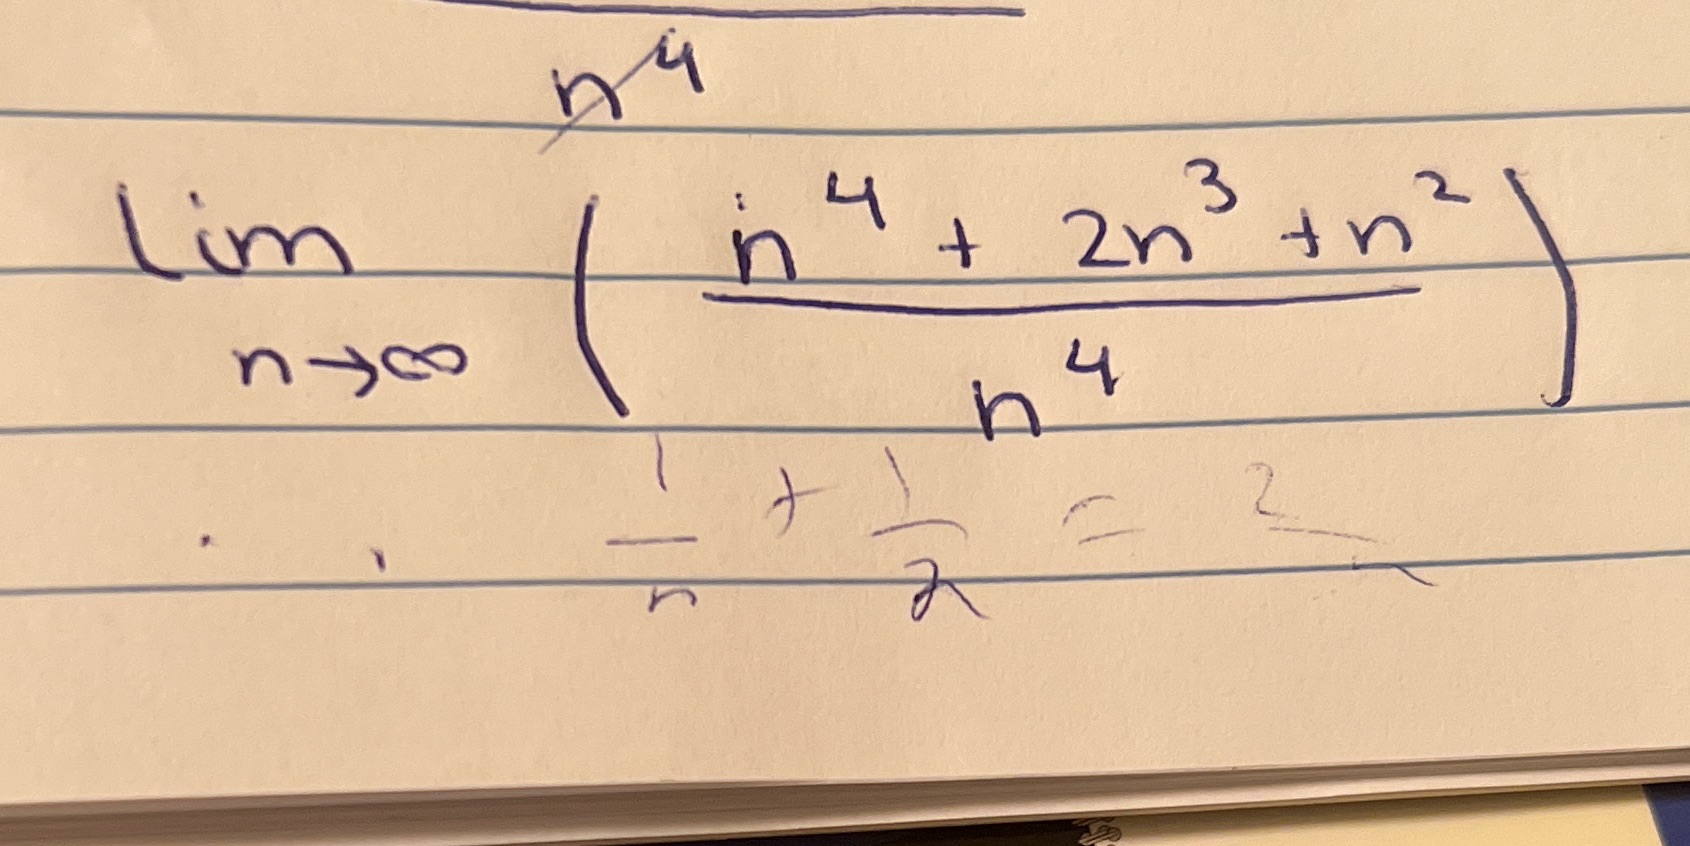 n⁴
lim n→∞ ( (n⁴ + 2n³ + n²) / n⁴ )
1/n + 1/2 = 2